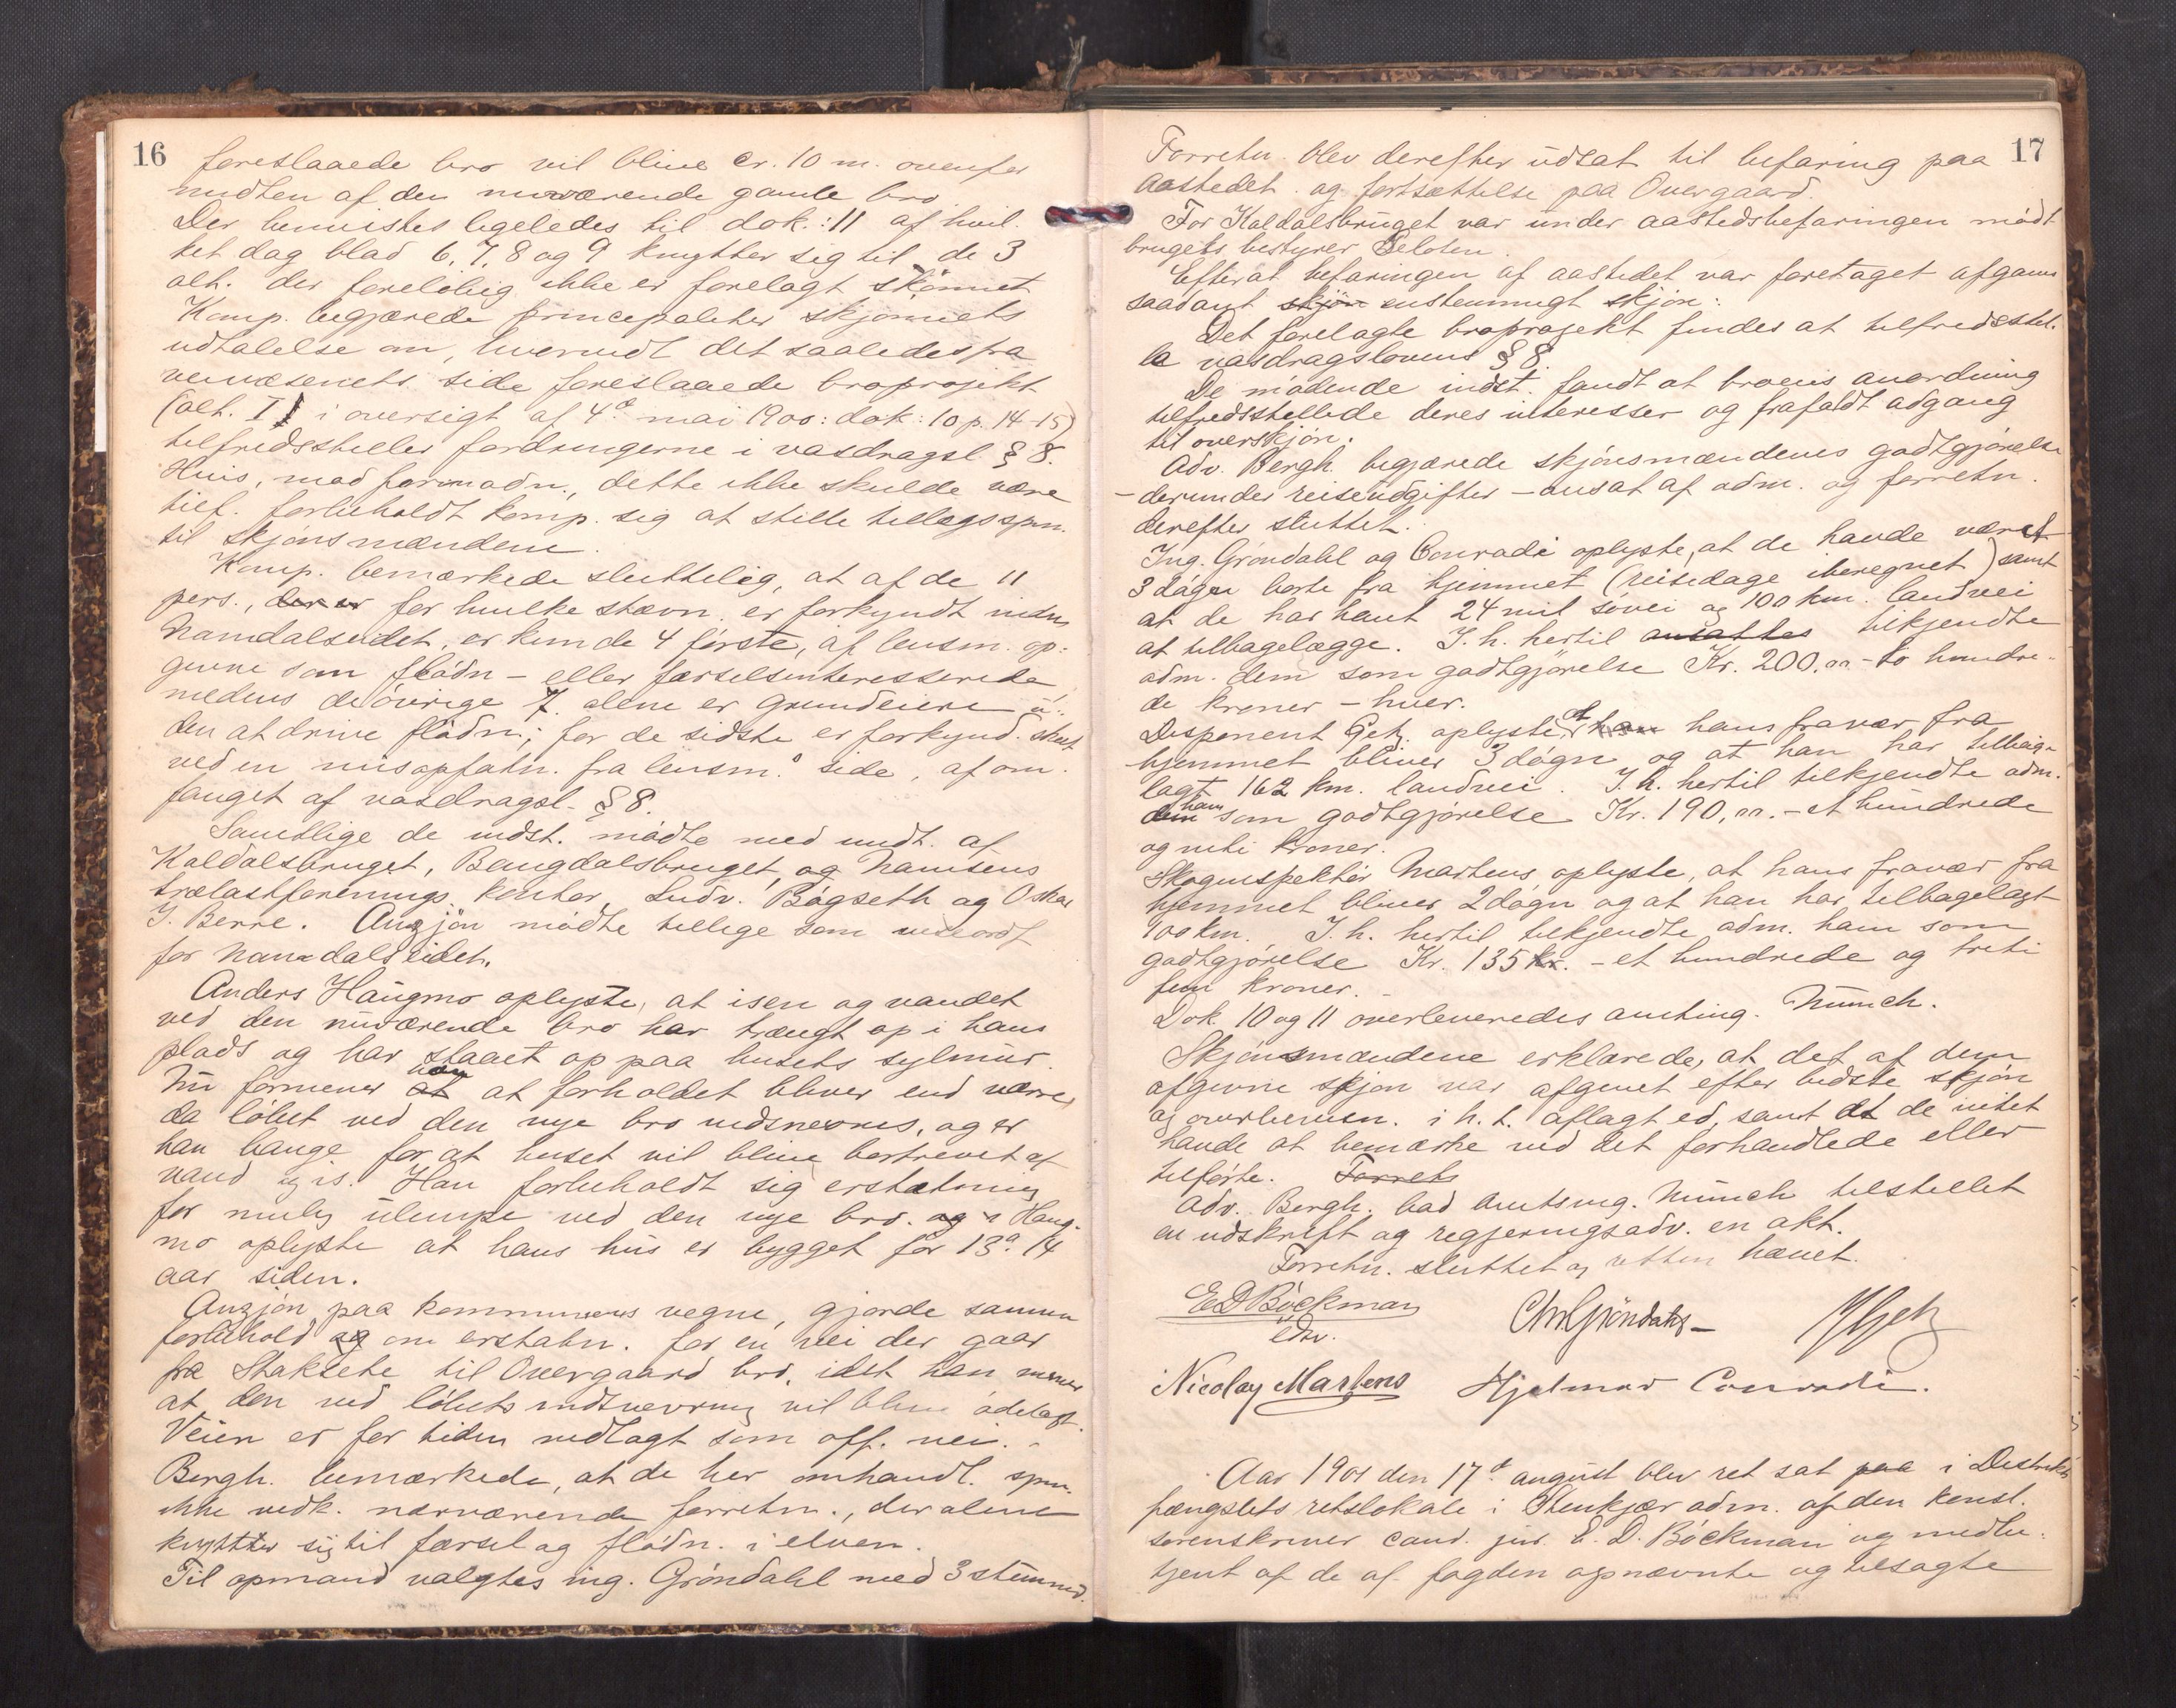 16
foreslaaede bro vil blive cr. 10 m. ovenfor
midten af den nuværende gamle bro.
Der henvistes ligeledes til dok.: 11 af hvil-
ket dog blad 6, 7, 8 og 9 knytter sig til de 3
alt. der foreløbig ikke er forelagt skjønnet
Komp. begjærede principaliter skjønnets
udtalelse om, hvorvidt det saaledes fra
veivæsenets side foreslaaede broprojekt
(alt. I i oversigt af 4d mai 1900: dok: 10 p. 14-15)
tilfredsstiller fordringerne i vasdragsl § 8.
Hvis, mod formodn., dette ikke skulde være
tilf. forbeholdt komp. sig at stille tillægsspm.
til skjønsmændene.
Komp. bemærkede sluttelig, at af de 11
pers., der er for hvilke stævn. er forkyndt inden
Namdalseidet, er kun de 4 første, af lensm. op-
givne som flødn- eller færselsinteresserede
medens de øvrige 7 alene er grundeiere u-
den at drive flødn; for de sidste er forkynd. skeet
ved en misopfatn. fra lensm.s side, af om-
fanget af vasdragsl. § 8.
Samtlige de indst. mødte med undt. af
Kaldalsbruget, Bangdalsbruget, og Namsens
trælastforenings kontor, Ludv. Bøgseth og Oskar
J. Berre. Anzjøn mødte tillige som viseordf
for Namdalseidet.
Anders Haugmo oplyste, at isen og vandet
ved den nuværende bro har trængt op i hans
plads og har staaet op paa husets sylmur.
Nu formener han at at forholdet bliver end værre,
da løbet ved den nye bro indsnevres, og er
han bange for at huset vil blive bortrevet af
vand og is. Han forbeholdt sig erstatning
for mulig ulempe ved den nye bro. og Haug-
mo oplyste at hans hus er bygget for 13 a 14
aar siden.
Anzjøn, paa kommunens vegne, gjorde samme
forbehold og om erstatn. for en vei der gaar
fra Staksete til Overgaard bro, idet han mener
at den ved løbets indsnevring vil blive ødelagt.
Veien er for tiden nedlagt som off. vei. -
Bergh. bemærkede, at de her omhandl. spm.
ikke vedk. nærværende forretn., der alene
knytter sig til færsel og flødn. i elven.
Til opmand valgtes ing. Grøndahl med 3 stemmer.
17
Forretn. blev derefter udsat til befaring paa
aastedet og fortsættelse paa Overgaard.
For Kaldalsbruget var under aastedsbefaringen mødt
brugets bestyrer Seloten.
Efterat befaringen af aastedet var foretaget afgaves
saadant skjøn enstemmigt skjøn:
Det forelagte broprojekt findes at tilfredsstil-
le vasdragslovens § 8.
De mødende indst. fandt at broens anordning
tilfredsstillede deres interesser og frafaldt adgang
til overskjøn.
Adv. Bergh. begjærede skjønsmændenes godtgjørelse
- derunder reiseudgifter - ansat af adm. og forretn.
derefter sluttet.
Ing. Grøndahl og Conradi oplyste, at de havde været
3 døgn borte fra hjemmet (reisedage iberegnet) samt
at de har havt 24 mil søvei og 100 km. landvei
at tilbagelægge. I. h. hertil ansattes tilkjendte
adm. dem som godtgjørelse Kr. 200,00 - to hundre-
de kroner - hver.
Disponent Getz oplyste, at han hans fravær fra
hjemmet bliver 3 døgn og at han har tilbage-
lagt 162 km. landvei. I. h. hertil tilkjendte adm.
dem ham som godtgjørelse Kr. 190,00. - et hundrede
og niti kroner.
Skoginspektør Martens oplyste, at hans fravær fra
hjemmet bliver 2 døgn og at han har tilbagelagt
100 km. I. h. hertil tilkjendte adm. ham som
godtgjørelse Kr. 135 kr. - et hundrede og treti
fem kroner.
Dok. 10 og 11 overleveredes amting. Münch.
Skjønsmændene erklærede, at det af dem
afgivne skjøn var afgivet efter bedste skjøn
og overbevisn. i h. t. aflagt ed, samt at de intet
havde at bemærke ved det forhandlede eller
tilførte. Forretn
Adv. Bergh. bad Amtsing. Münch tilstillet
en udskrift og regjeringsadv. en akt.
Forretn. sluttet og retten hævet.
E D Bóckman
edv.
Chr Grøndahl -
Getz
Nicolay Martens
Hjalmar Conradi.
Aar 1901 den 17d august blev ret sat paa i Distrikts
fængslets retslokale i Stenkjær adm. af den konst.
sorenskriver cand. jur. E. D. Bóckman og medbe-
tjent af de af fogden opnævnte og tilsagte